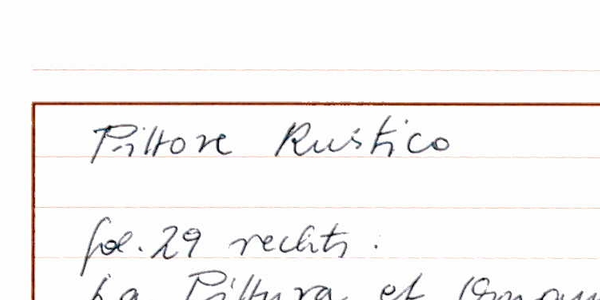 Pittore Rustico
fol. 29 rechts :
La Pittura et